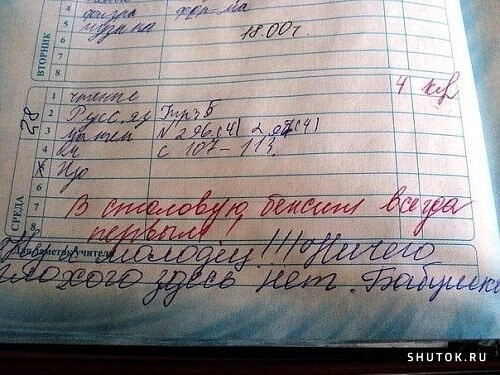 4 физра форма
5 музыка
6 18.00 г.
7
8
ВТОРНИК
28
1 чтение 4 кл
2 Русс. яз Упр 5
3 матем N 296.(4) (4)
4 с 107-113.
5 Изо
6
7 В столовую бежит всегда
8 первым!
СРЕДА
Ну и молодец!!! Ничего
учителя
плохого здесь нет. Бабушка
SHUTOK.RU